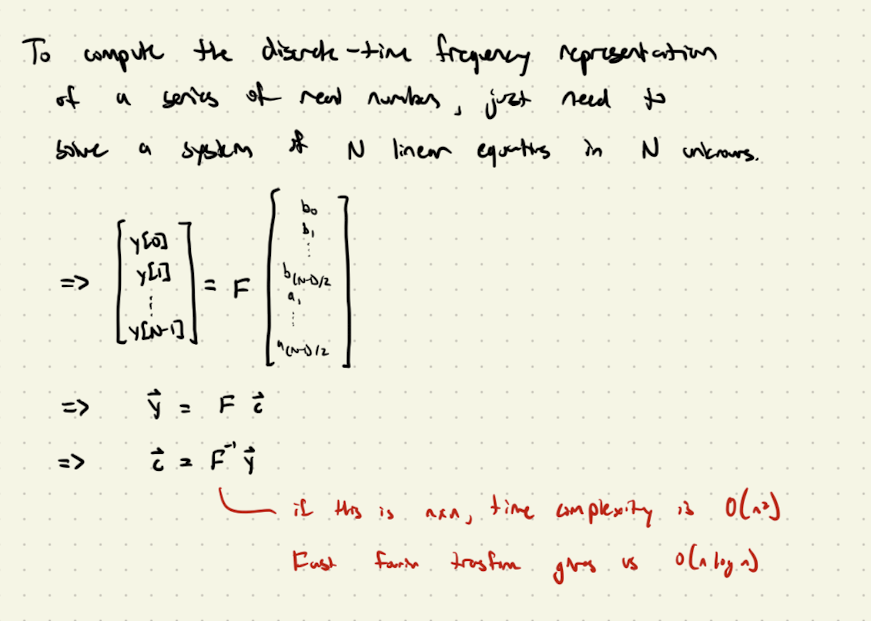 To compute the discrete-time frequency representation
of a series of real numbers, just need to
solve a system of N linear equations in N unknowns.
=> [y[0] y[1] ⋮ y[N-1]] = F [b₀ b₁ ⋮ b₍N-1₎/2 a₁ ⋮ a₍N-1₎/2]
=> y⃗ = F c⃗
=> c⃗ = F⁻¹ y⃗
if this is nxn, time complexity is O(n²)
Fast fourier transform gives us O(n log n)